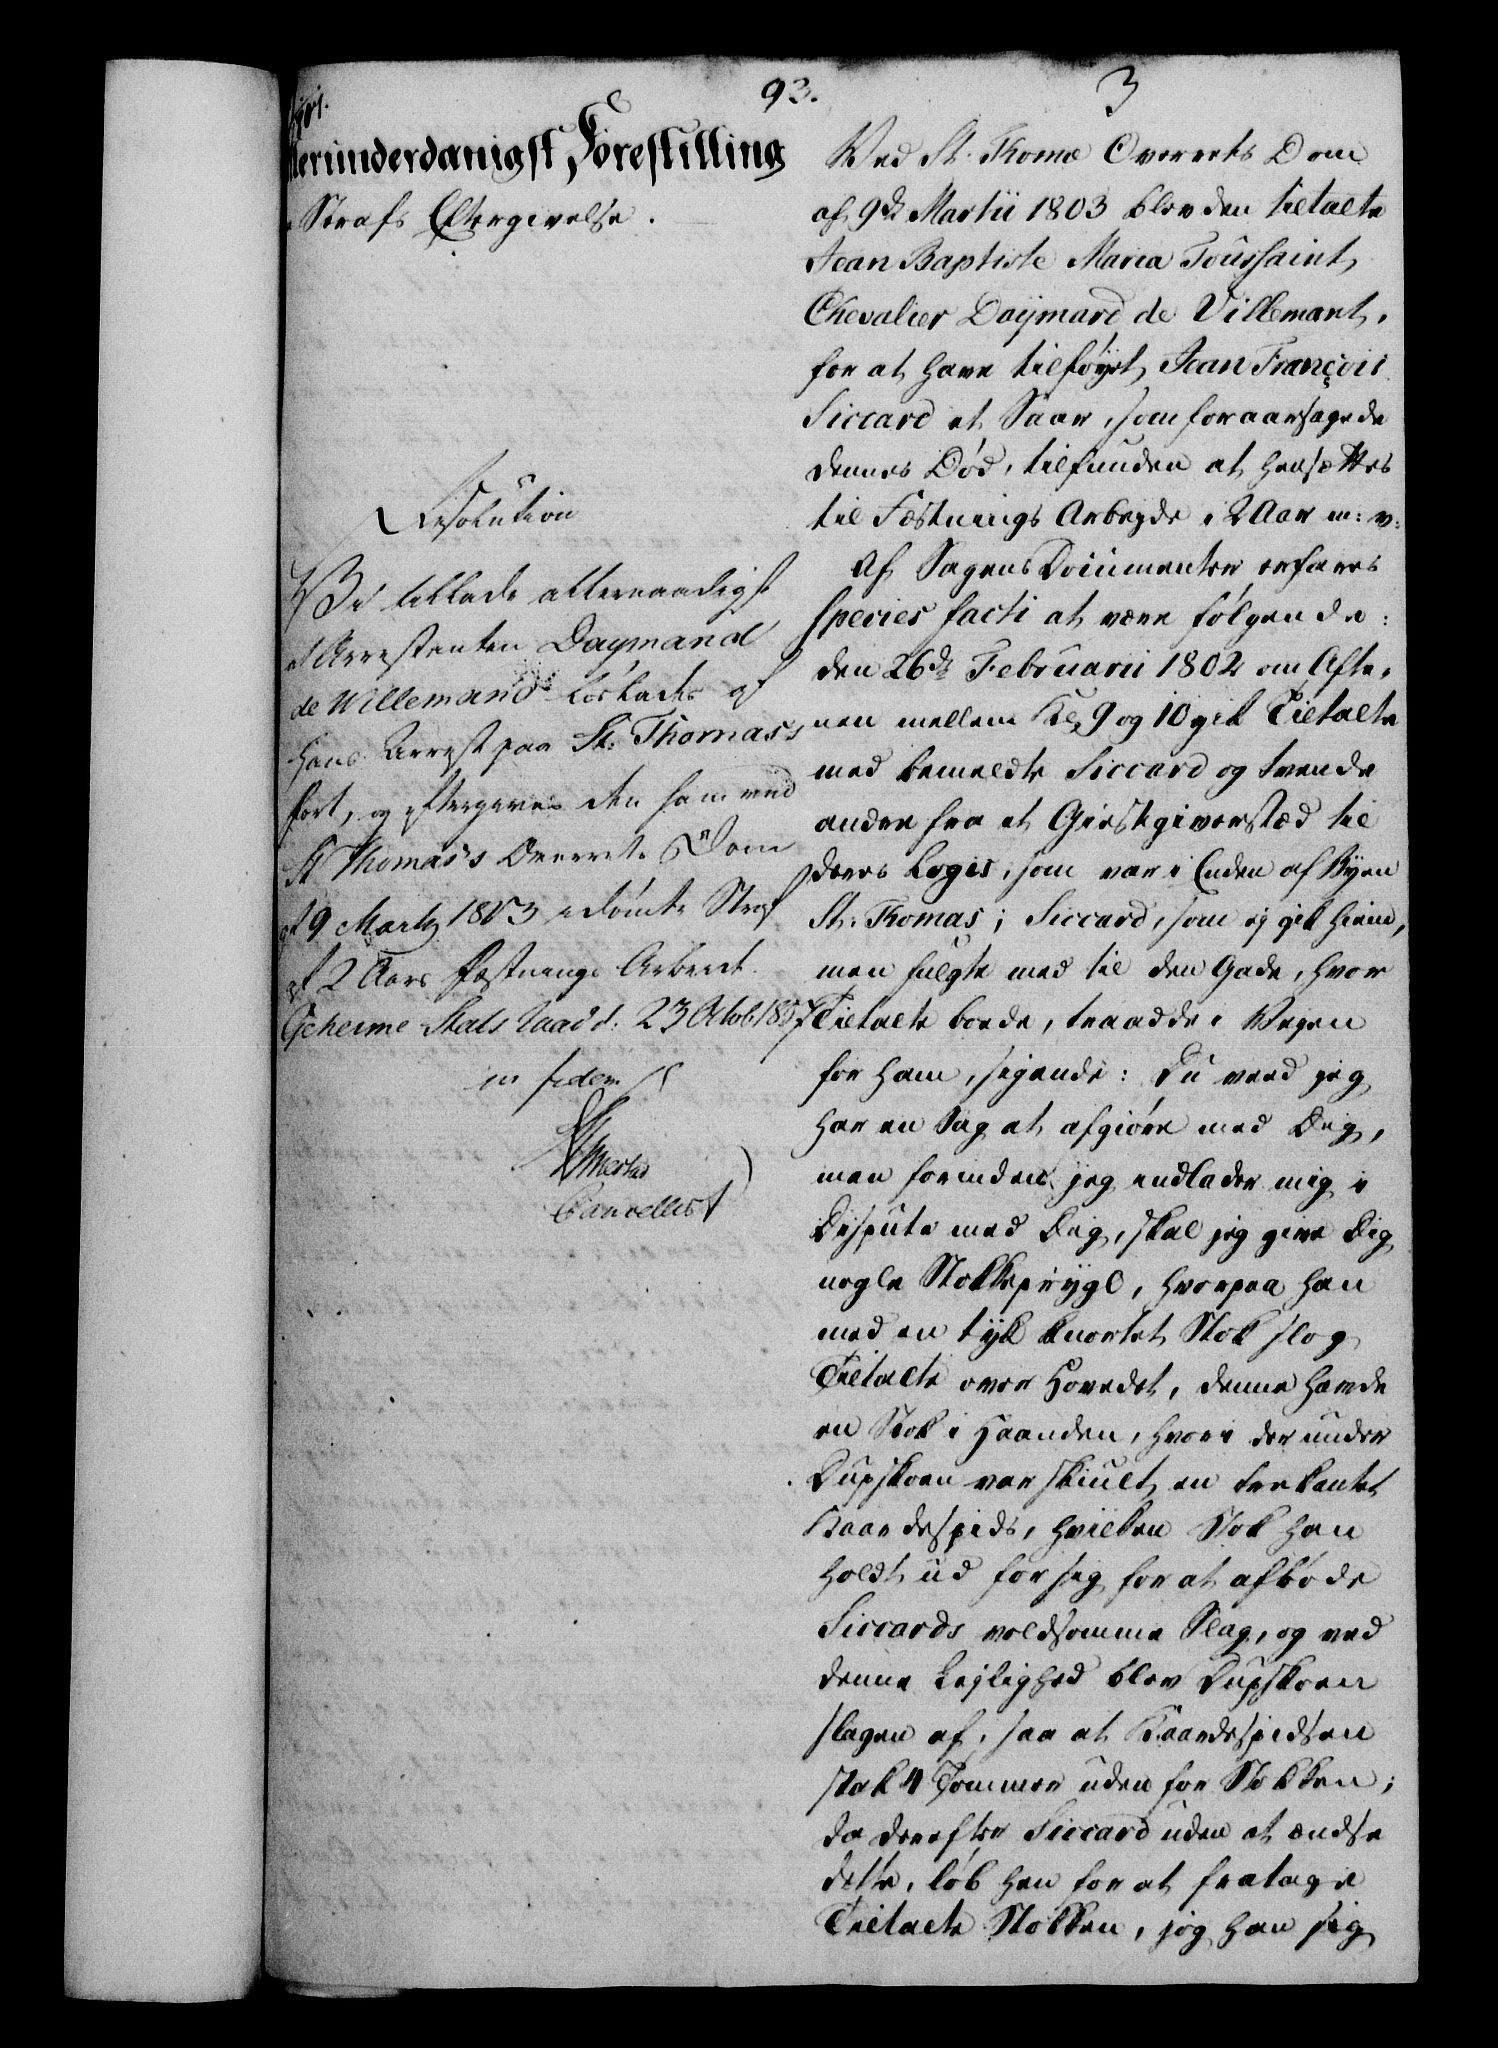 93.
3
lerunderdanigst Forestilling
Strafs Eftergivelse.
Resolution
Vi tillade allernaadigst
at Arrestenten Daymand
de Willemand løslades af
hans Arrest paa St. Thomas's
fort, og eftergives den ham ved
St Thomas's Overrets Dom
af 9 Martz 1803 idømte Straf
af 2 Aars Fæstnings Arbeide.
Geheime Stats Raad d. 23 Octob 1807
in fidem
Cancellist
Ved St. Thomæ Overrets Dom
af 9de Martii 1803 blev den tiltalte
Jean Baptiste Maria Toussaint,
Chevalier Daÿmard de Villemant,
for at have tilføyet Jean François
Siccard et Saar, som foraarsagede
dennes Død, tilfunden at hensættes
til Fæstnings Arbeyde i 2 Aar m: v:
Af Sagens Documenter erfares
species facti at være følgende:
den 26de Februarii 1802 om Afte-
nen mellem Kl. 9 og 10 gik Tiltalte
med bemeldte Siccard og tvende
andre fra et Giestgiverstæd til
deres Logis, som var i Enden af Byen
St. Thomas; Siccard, som ej gik hiem,
men fulgte med til den Gade, hvor
Tiltalte boede, traadde i Vegen
for ham, sigende: Du veed jeg
har en Sag at afgiøre med Dig,
men forinden jeg indlader mig i
Dispute med Dig, skal jeg give Dig
nogle Stokkeprygl, hvorpaa han
med en tyk knortet Stok slog
Tiltalte over Hovedet, denne havde
en Stok i Haanden, hvori der under
Dupskoen var skiult en trekantet
Kaardespids, hvilken Stok han
holdt ud for sig for at afbøde
Siccards voldsomme Slag, og ved
denne Lejlighed blev Dupskoen
slagen af, saa at Kaardespidsen
stak 4 Tommer uden for Stokken;
da derefter Siccard uden at ændse
dette, løb hen for at fratage
Tiltalte Stokken, jog han sig